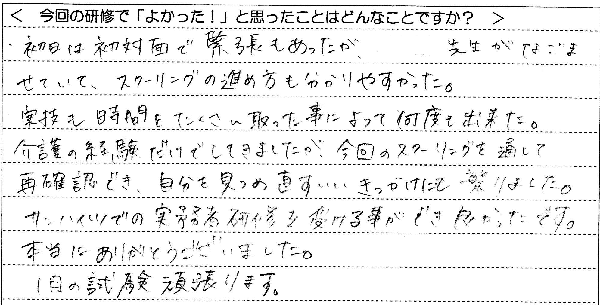 ＜ 今回の研修で「よかった！」と思ったことはどんなことですか？ ＞
・初日は初対面で緊張もあったが、 先生がなごま
せていて、スクーリングの進め方も分かりやすかった。
実技も時間をたくさん取った事によって何度も出来た。
介護の経験だけでしてきましたが、今回のスクーリングを通して
再確認でき、自分を見つめ直すいいきっかけにも繋りました。
サンハイツでの実務者研修を受ける事ができ良かったです。
本当にありがとうございました。
1月の試験頑張ります。